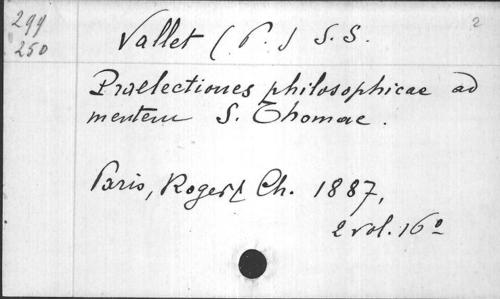 299
250
2
Vallet (P.) S.S.
Prælectiones philosophicae ad
mentem S. Thomae.
Paris, Roger, Ch. 1887,
2 vol. 16º